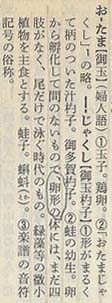 おたま【御玉】〔婦人語〕①玉子。鶏卵。②「おたまじゃ
くし」の略。ーじゃくし【御玉杓子】①形がまるくっ
て柄のついた汁杓子。御多賀杓子。②蛙の幼生。卵
から孵化して間のないもので卵形の体には、まだ四
肢がなく、尾だけで泳ぐ時代のもの。緑藻等の微小
植物を主食とする。蛙子。蝌蚪(かと)。③楽譜の音符
記号の俗称。